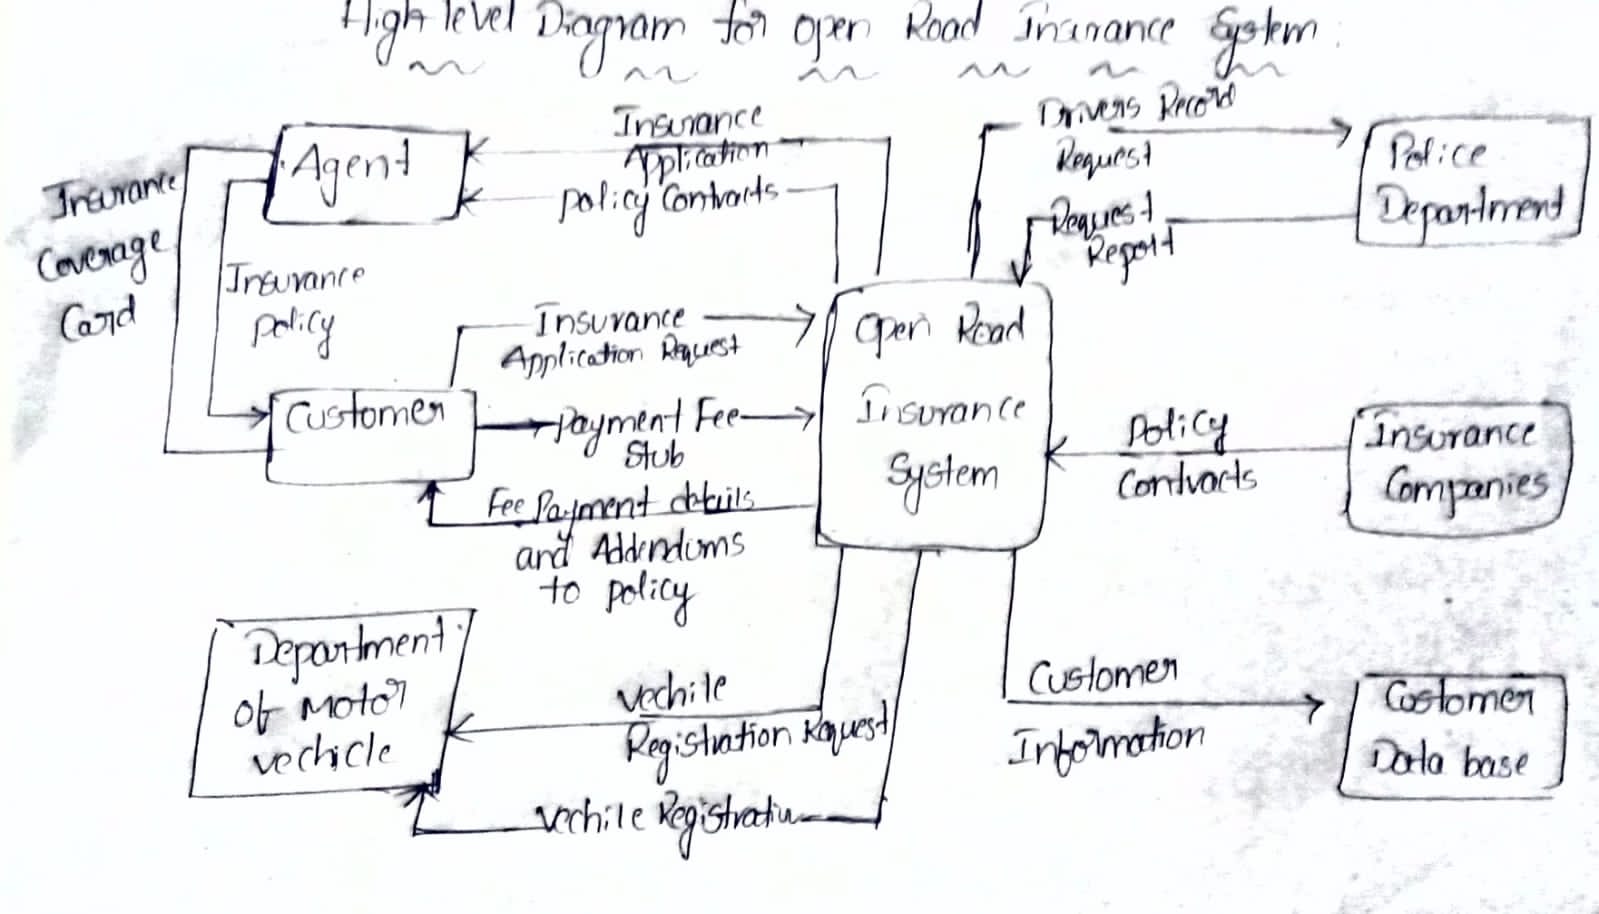 High level Diagram for open Road Insurance System:
Agent
Insurance
Application
policy Contracts
Drivers Record
Request
Police
Department
Request
Report
Insurance
Coverage
Card
Insurance
policy
Insurance
Application Request
Open Road
Insurance
System
Customer
Payment Fee
Stub
Fee Payment details
and Addendums
to policy
policy
Contracts
Insurance
Companies
Department
of Motor
vechicle
vechile
Registration Request
vechile Registration
Customer
Information
Customer
Data base